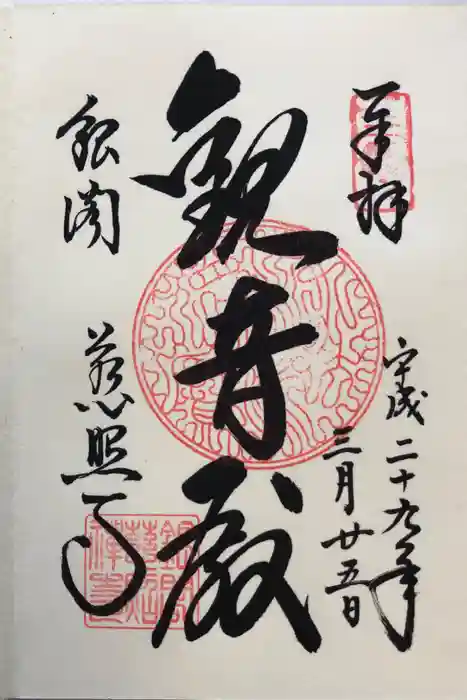 奉拝
平成二十九年
三月廿五日
観音殿
銀閣
慈照寺